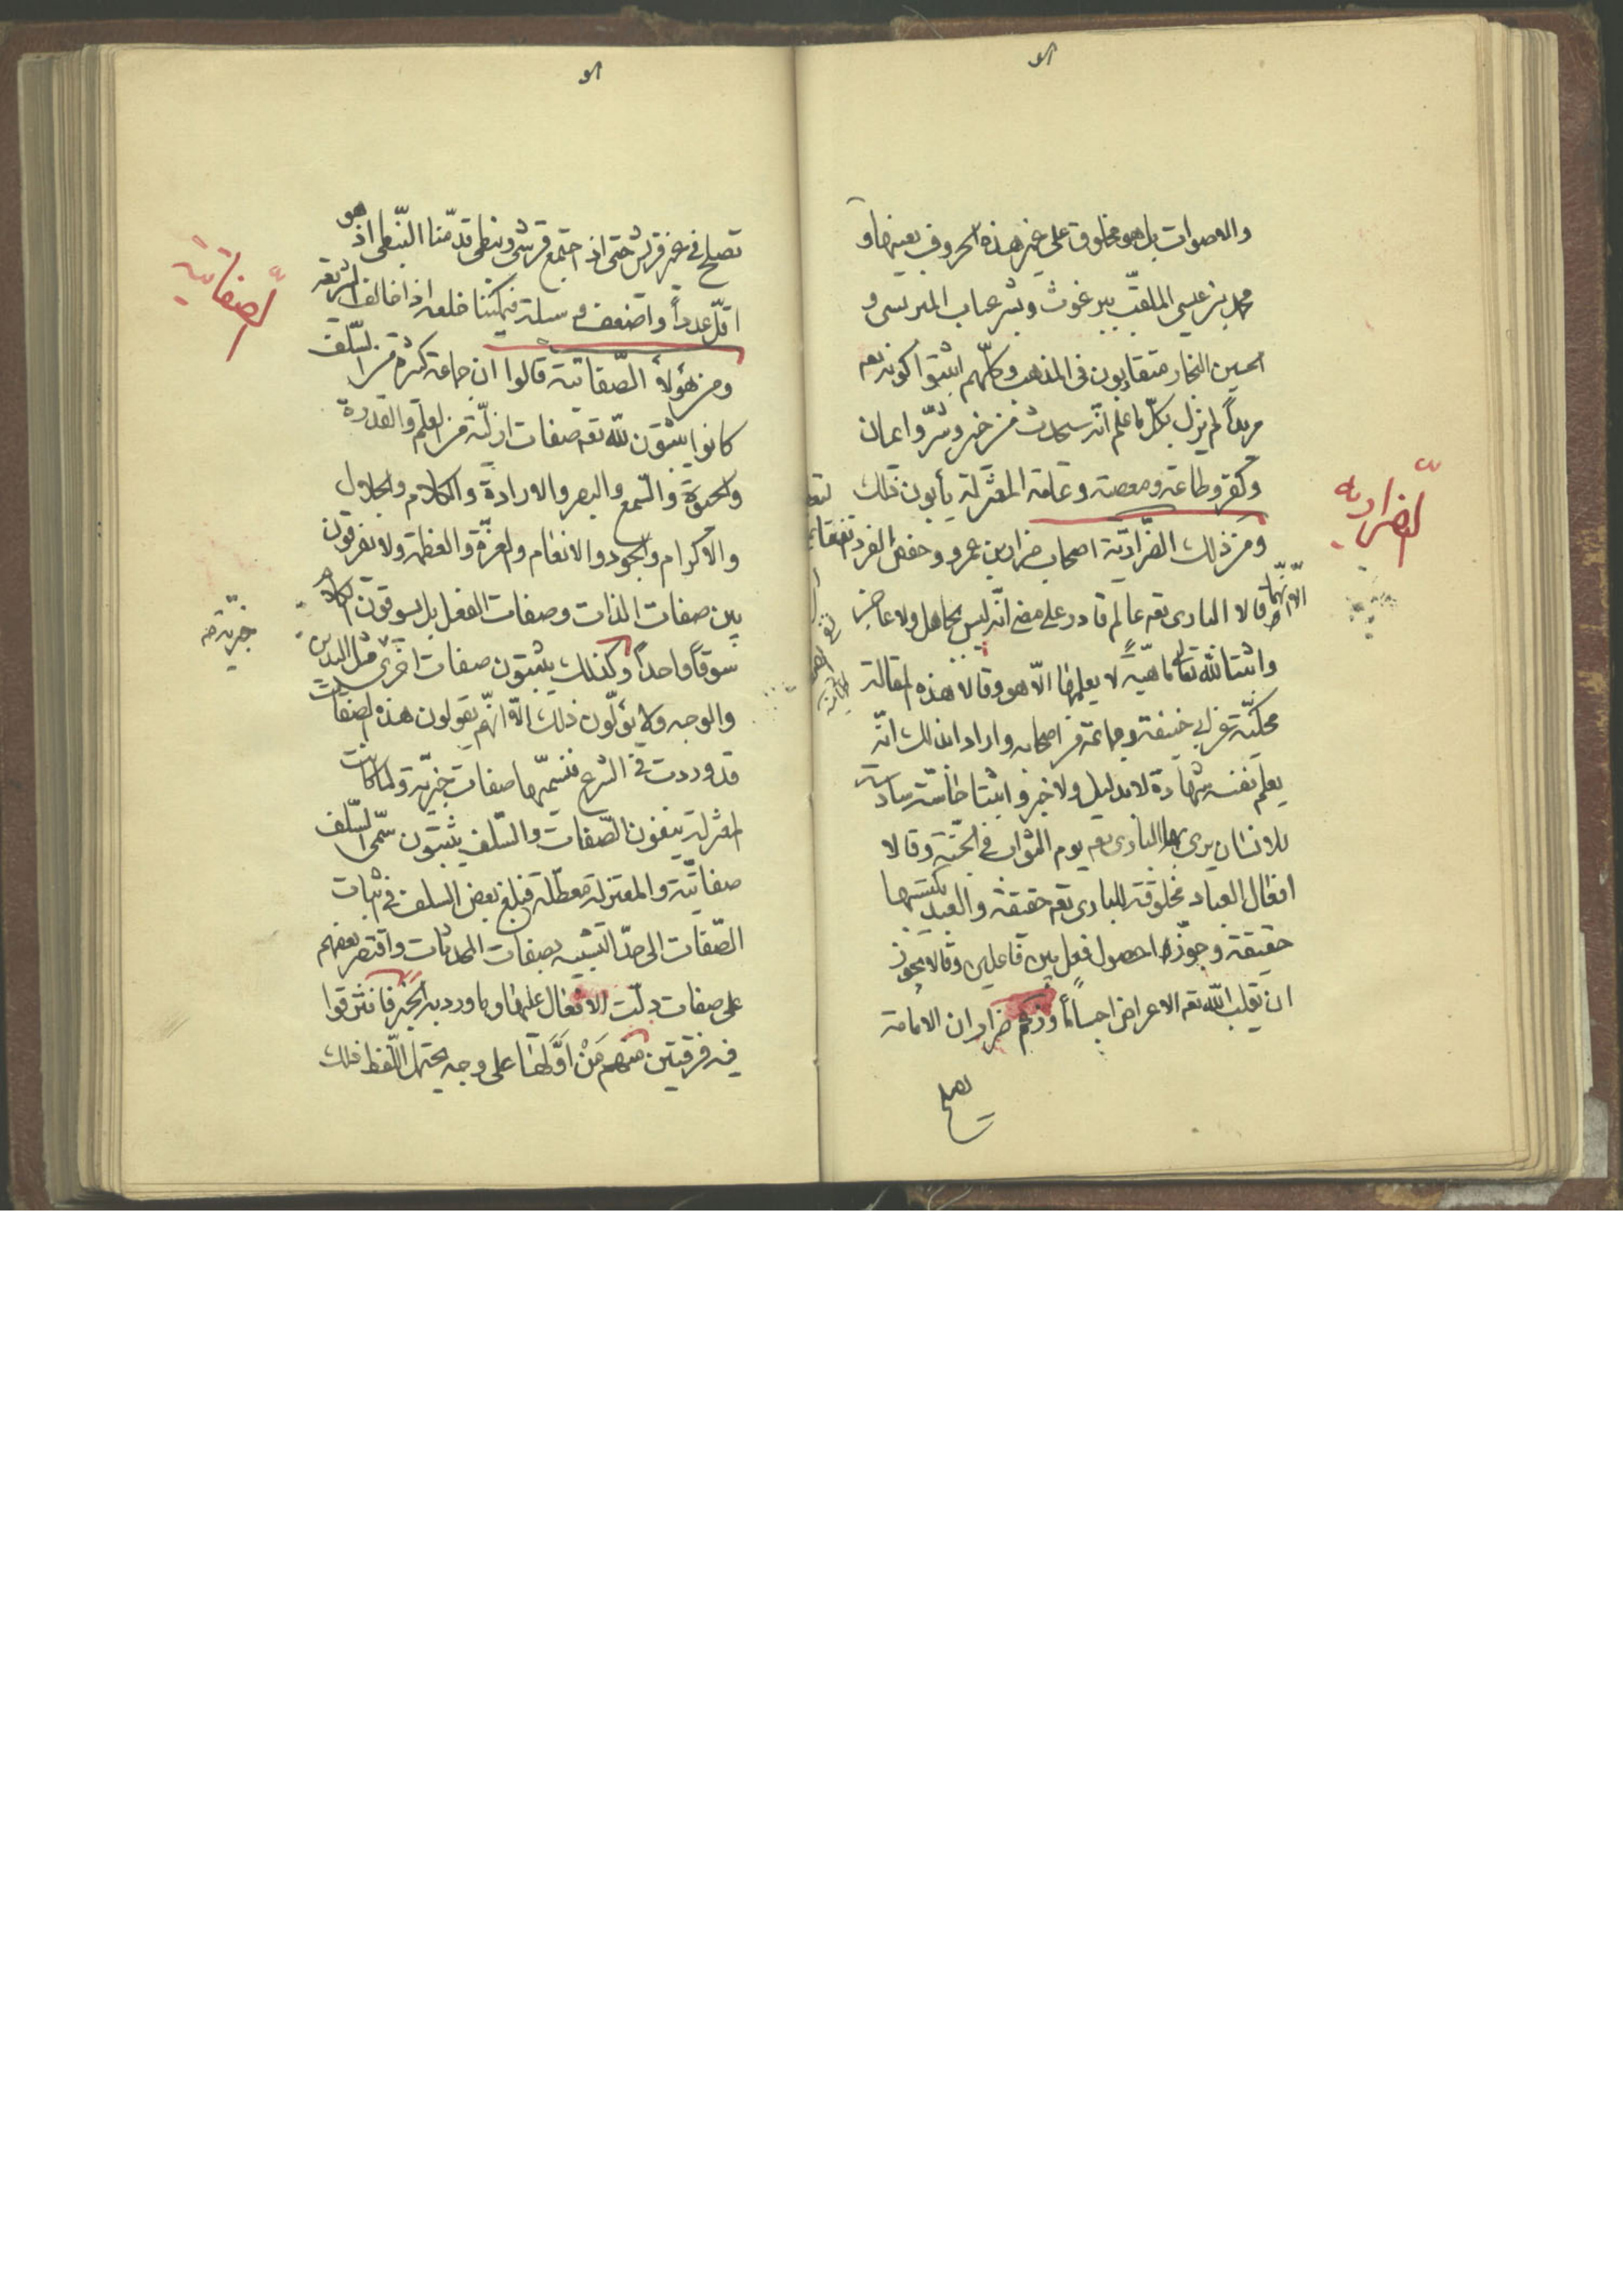 والاصوات بل هو مخلوق على غير هذه الحروف بعينها و
محمد بن عيسى الملقب ببرغوث وبشر عباب المريسى و
الحسين النجار متقاربون فى المذهب وكلّهم اثبتوا كونه تعم
مريداً لم يزل بكلّ ما علم انّه سيحدث من خير وشرّ وايمان
وكفر وطاعة ومعصية وعامة المعتزلة يأبون ذلك
الضراريه
ومن ذلك الضّراريّة اصحاب ضرار بن عمرو وحفص الفرد
الّا انّهما قالا البارى تعم عالم قادر على معنى انّه ليس بجاهل ولا عاجز
واثبتا لله تعالى ماهيّةً لا يعلمها الّا هو وقالا هذه المقالة
محكيّة عن ابى حنيفة وجماعة من اصحابه وارادا بذلك انّه
يعلم نفسه شهادة لا بدليل ولا خبر واثبتا حاسّة سادسة
للانسان يرى بها البارى تعم يوم الثواب فى الجنّة وقالا
افعال العباد مخلوقة للبارى تعم حقيقة والعبد يكتسبها
حقيقة وجوّزا حصول فعل بين فاعلين وقالا يجوز
ان يقلب الله تعم الاعراض اجساماً وزعم ضرار ان الامامة
يصلح
تصلح فى غير قريش حتى اذ اجتمع قرشى ونبطى قدّمنا النّبطى اذ هو
اقلّ عدداً واضعف وسيلة فيمكننا خلعه اذا خالف الشريعة
الصّفاتية
ومن هؤلاء الصّفاتية قالوا ان جماعة كثيرة من السّلف
كانوا يثبتون لله تعم صفات ازليّة من العلم والقدرة
والحيوة والسّمع والبصر والارادة والكلام والجلال
والاكرام والجود والانعام والعزّة والعظمة ولا يفرقون
بين صفات الذات وصفات الفعل بل يسوقون الكلام
سوقاً واحداً وكذلك يثبتون صفات اخرى مثل اليدين
والوجه ولا يؤلّون ذلك الّا انّهم يقولون هذه الصفات
قد وردت فى الشرع فنسمّيها صفات خبريّة ولما كانت
خبريّة
المعتزلة ينفون الصّفات والسّلف يثبتون سمّى السّلف
صفاتيّة والمعتزلة معطّلة فبلغ بعض السلف فى اثبات
الصّفات الى حدّ التشبيه بصفات المحدثات واقتصر بعضهم
على صفات دلّت الافعال عليها وما ورد به الخبر فافترقوا
فيه فرقتين منهم مَنْ اوّلها على وجه يحتمل اللّفظ ذلك